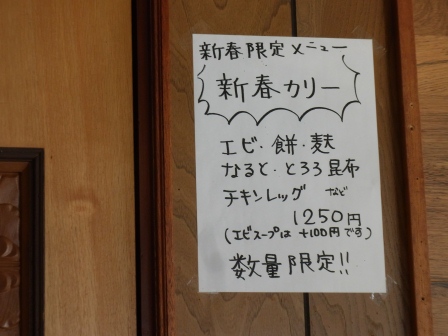 新春限定メニュー
新春カリー
エビ・餅・麩
なると・とろろ昆布
チキンレッグ など
1250円
(エビスープは +100円です)
数量限定!!